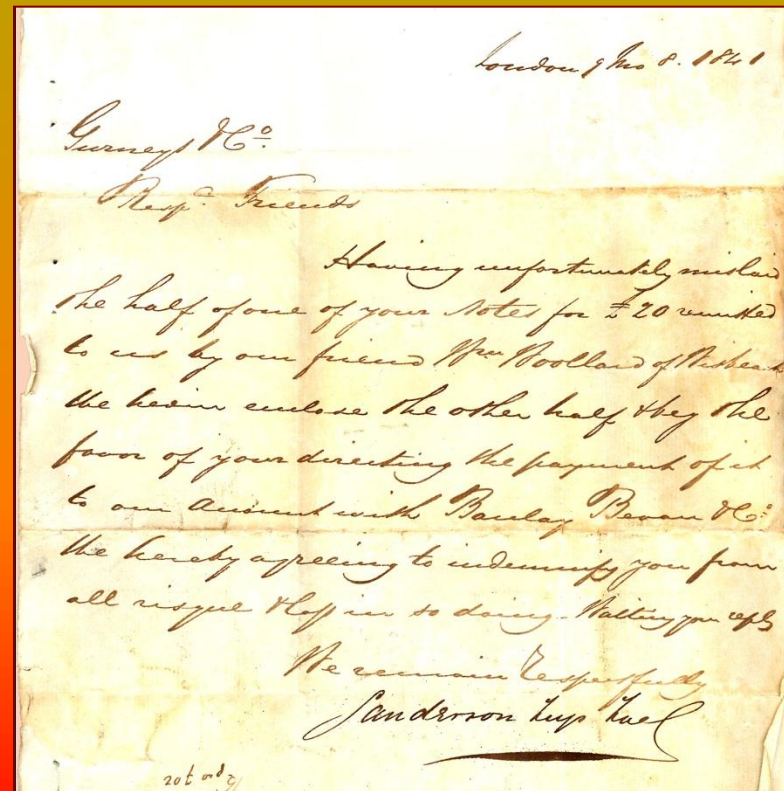 London 9 Mo 8. 1841
Gurneys & Co.
Respd. Friends
Having unfortunately mislaid
the half of one of your Notes for £20 remitted
to us by our friend Wm Woolland of Wisbeach
We herein enclose the other half & beg the
favor of your directing the payment of it
to our Account with Barclay Bevan & Co.
We hereby agreeing to indemnify you from
all risque & loss in so doing. Waiting your reply
We remain Respectfully
Sanderson